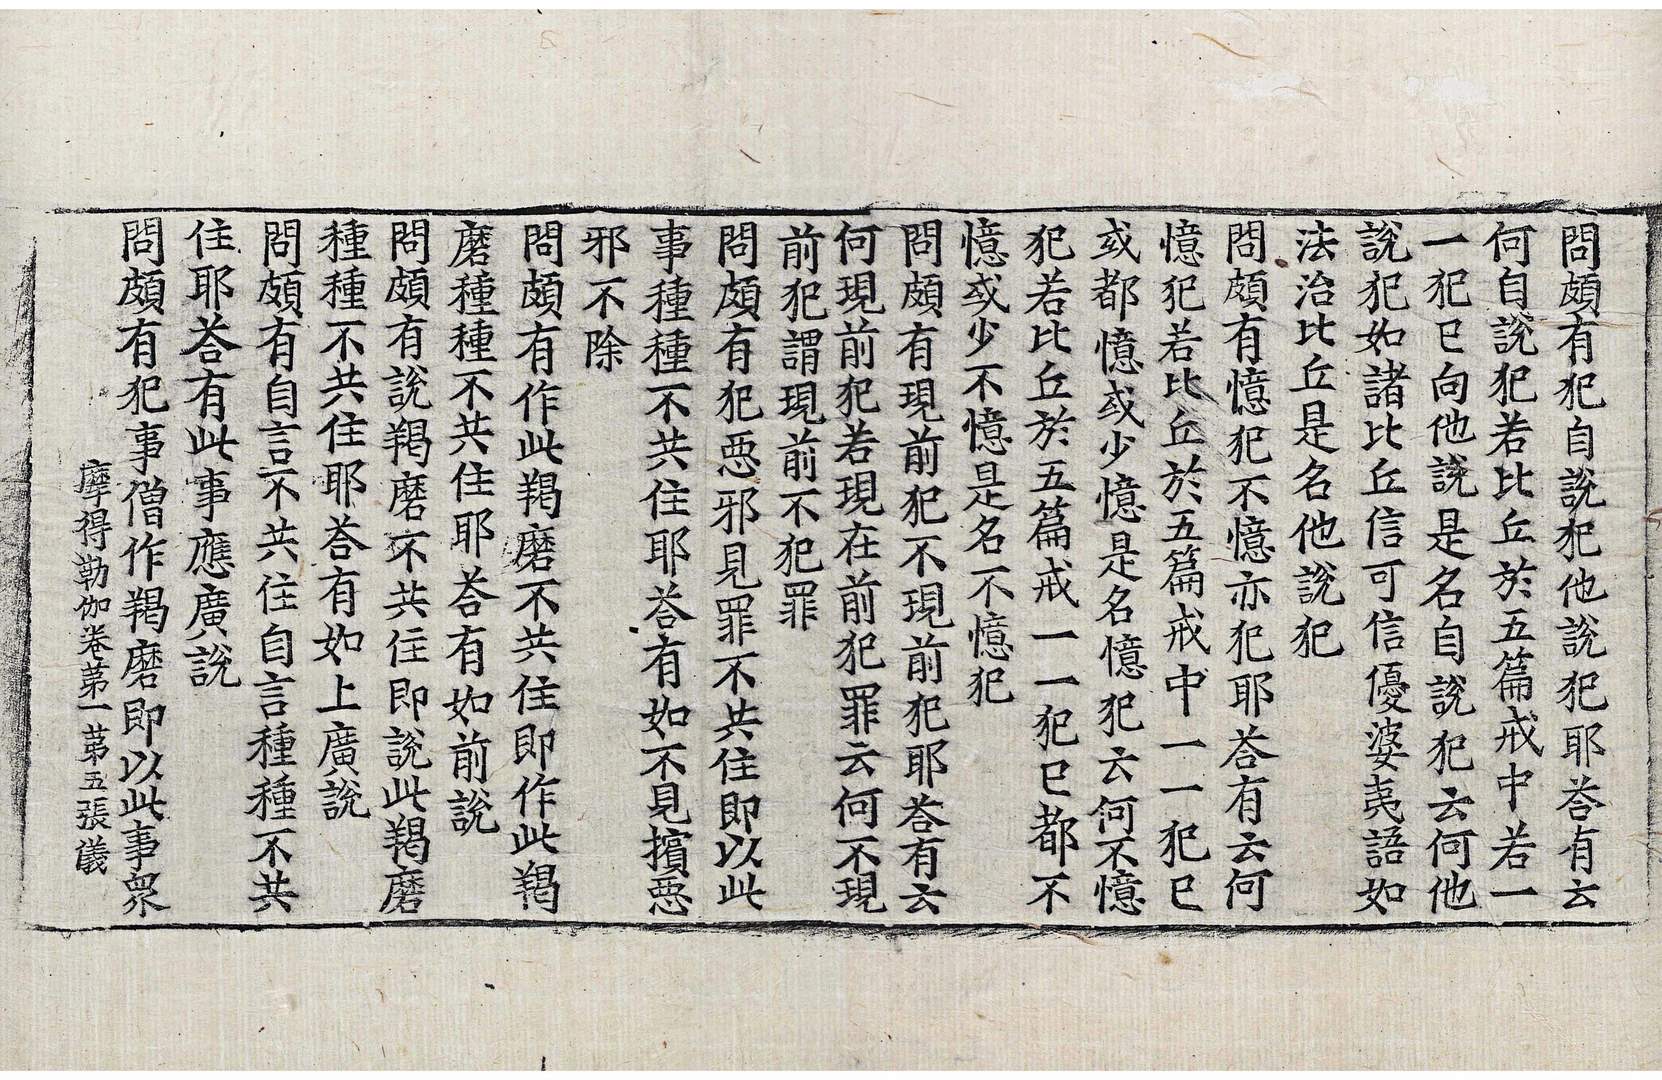 問頗有犯自說犯他說犯耶荅有云
何自說犯若比丘於五篇戒中若一
一犯已向他說是名自說犯云何他
說犯如諸比丘信可信優婆夷語如
法治比丘是名他說犯
問頗有憶犯不憶亦犯耶荅有云何
憶犯若比丘於五篇戒中一一犯已
或都憶或少憶是名憶犯云何不憶
犯若比丘於五篇戒一一犯已都不
憶或少不憶是名不憶犯
問頗有現前犯不現前犯耶荅有云
何現前犯若現在前犯罪云何不現
前犯謂現前不犯罪
問頗有犯惡邪見罪不共住即以此
事種種不共住耶荅有如不見擯惡
邪不除
問頗有作此羯磨不共住即作此羯
磨種種不共住耶荅有如前說
問頗有說羯磨不共住即說此羯磨
種種不共住耶荅有如上廣說
問頗有自言不共住自言種種不共
住耶荅有此事應廣說
問頗有犯事僧作羯磨即以此事衆
摩得勒伽卷第一 第五張 儀